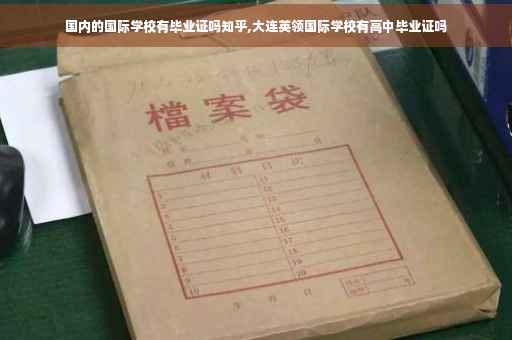 国内的国际学校有毕业证吗知乎,大连英领国际学校有高中毕业证吗
檔案袋
材料目次
1 11
2 12
3 13
4 14
5 15
6 16
7 17
8 18
9 19
10 20
年 月 日